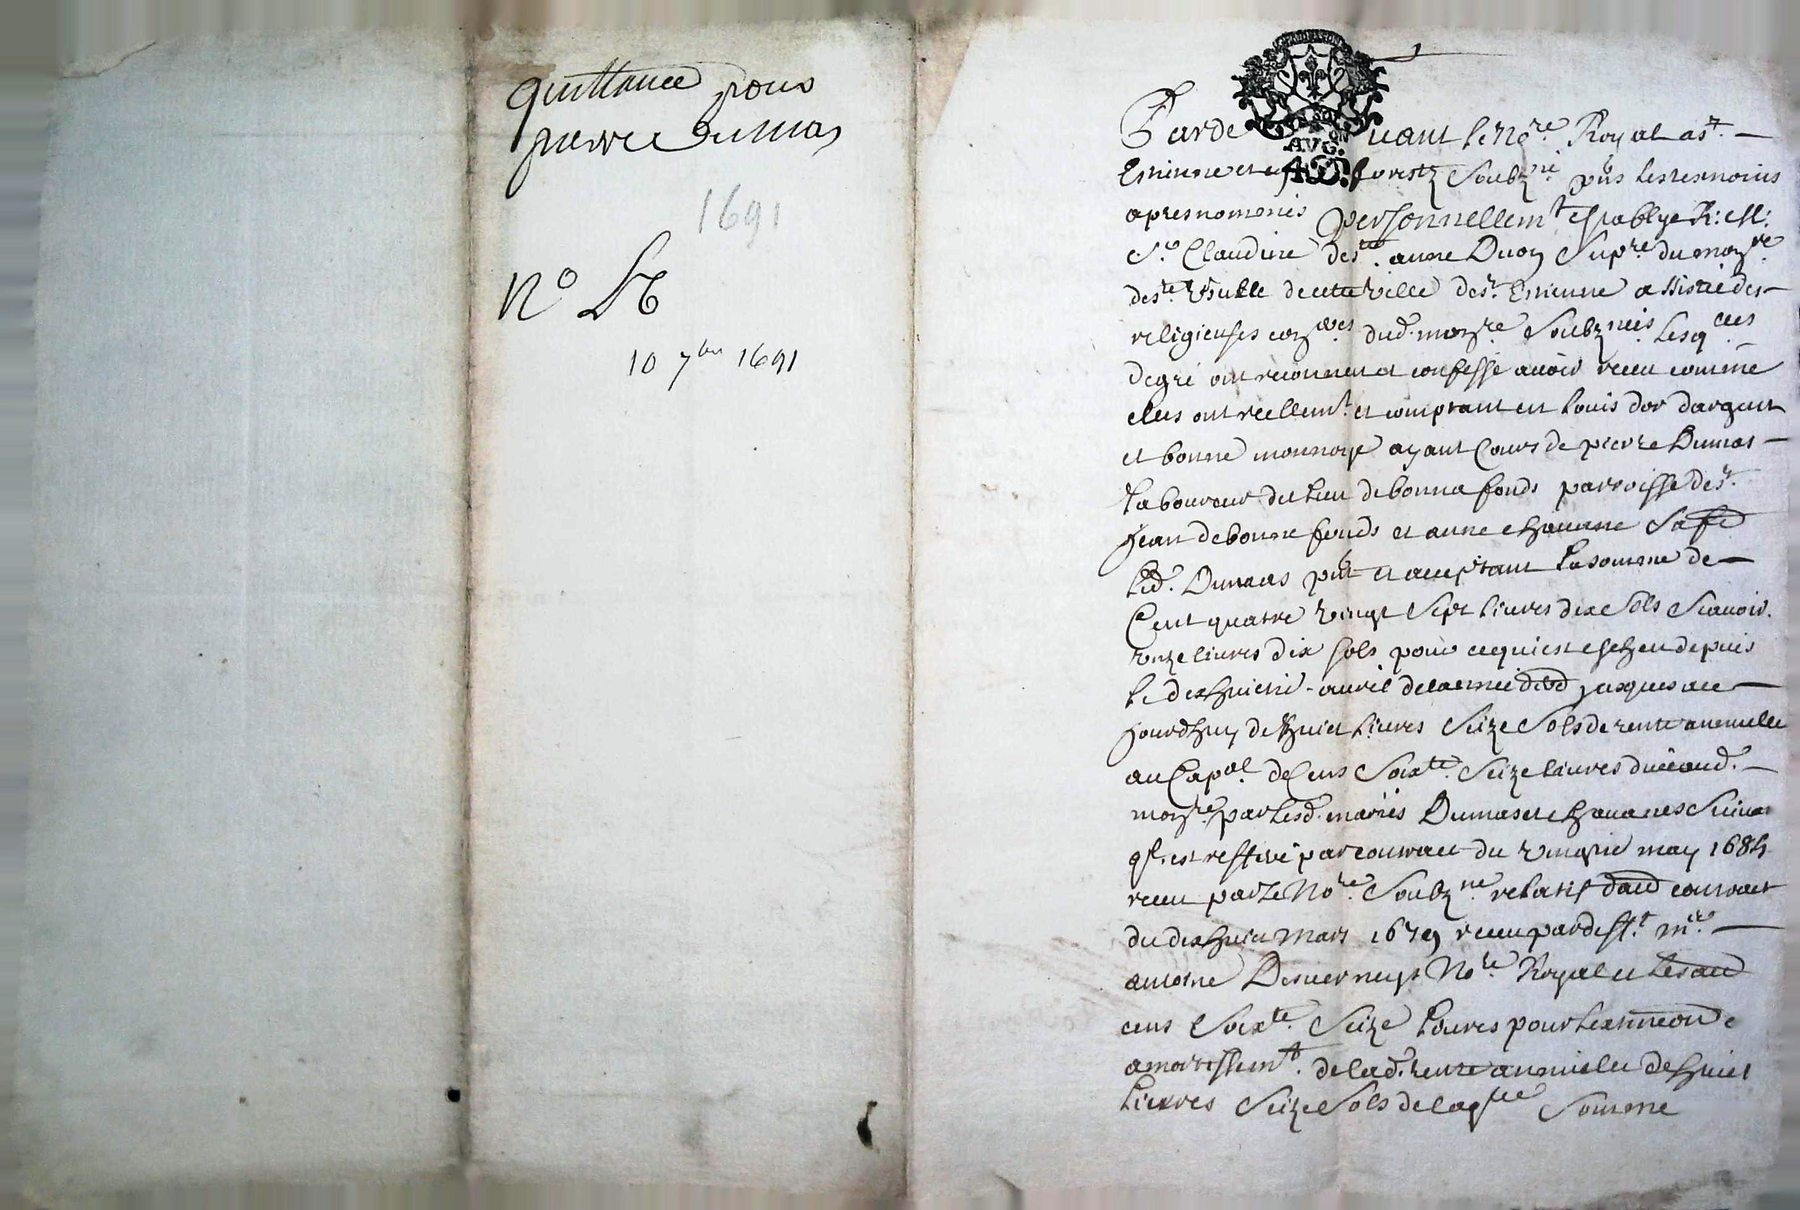 quittance pour
pierre Dumas
1691
N°
10 7bre 1691
AVG.
Pardevant le Nore Royal a st.
Estienne et en forestz soubzne pnts les tesmoins
apres nommés personnellemt establye R: M:
Sr Claudine de ste. anne Supre du mosre
de ste Ursulle de cette ville de st. Estienne assistée des
religieuses dud. mosre soubznées Lesqles
de gré ont reconneu et confessé avoir receu comme
elles ont réellemt et comptant en Louis d'or d'argent
et bonne monnoye ayant Cours de pierre Dumas
Laboureur du lieu de bonnafonds parroisse de st.
Jean de bonnefonds et anne chavane sa fe
led. Dumas pnt et acceptant la somme de
Cent quatre vingt sept livres dix sols scavoir
unze livres dix sols pour ce qui est escheu depuis
le dixhuict avril de lannée jusques au
jourdhuy de huict livres seize sols de rente annuelle
au Capal de Cens soixte seize livres aud.
mosre par lesd. mariés Dumas et chavanes suivant
ql. est par contract du vingt may 1684
receu par le Nore soubzne relatif contract
du dixhuict mars 1679 receu par defft me
antoine Desverneys Nore Royal et les
cens soixte seize livres pour
amortissemt de lad. rente annuelle de huict
livres seize sols de laqlle somme